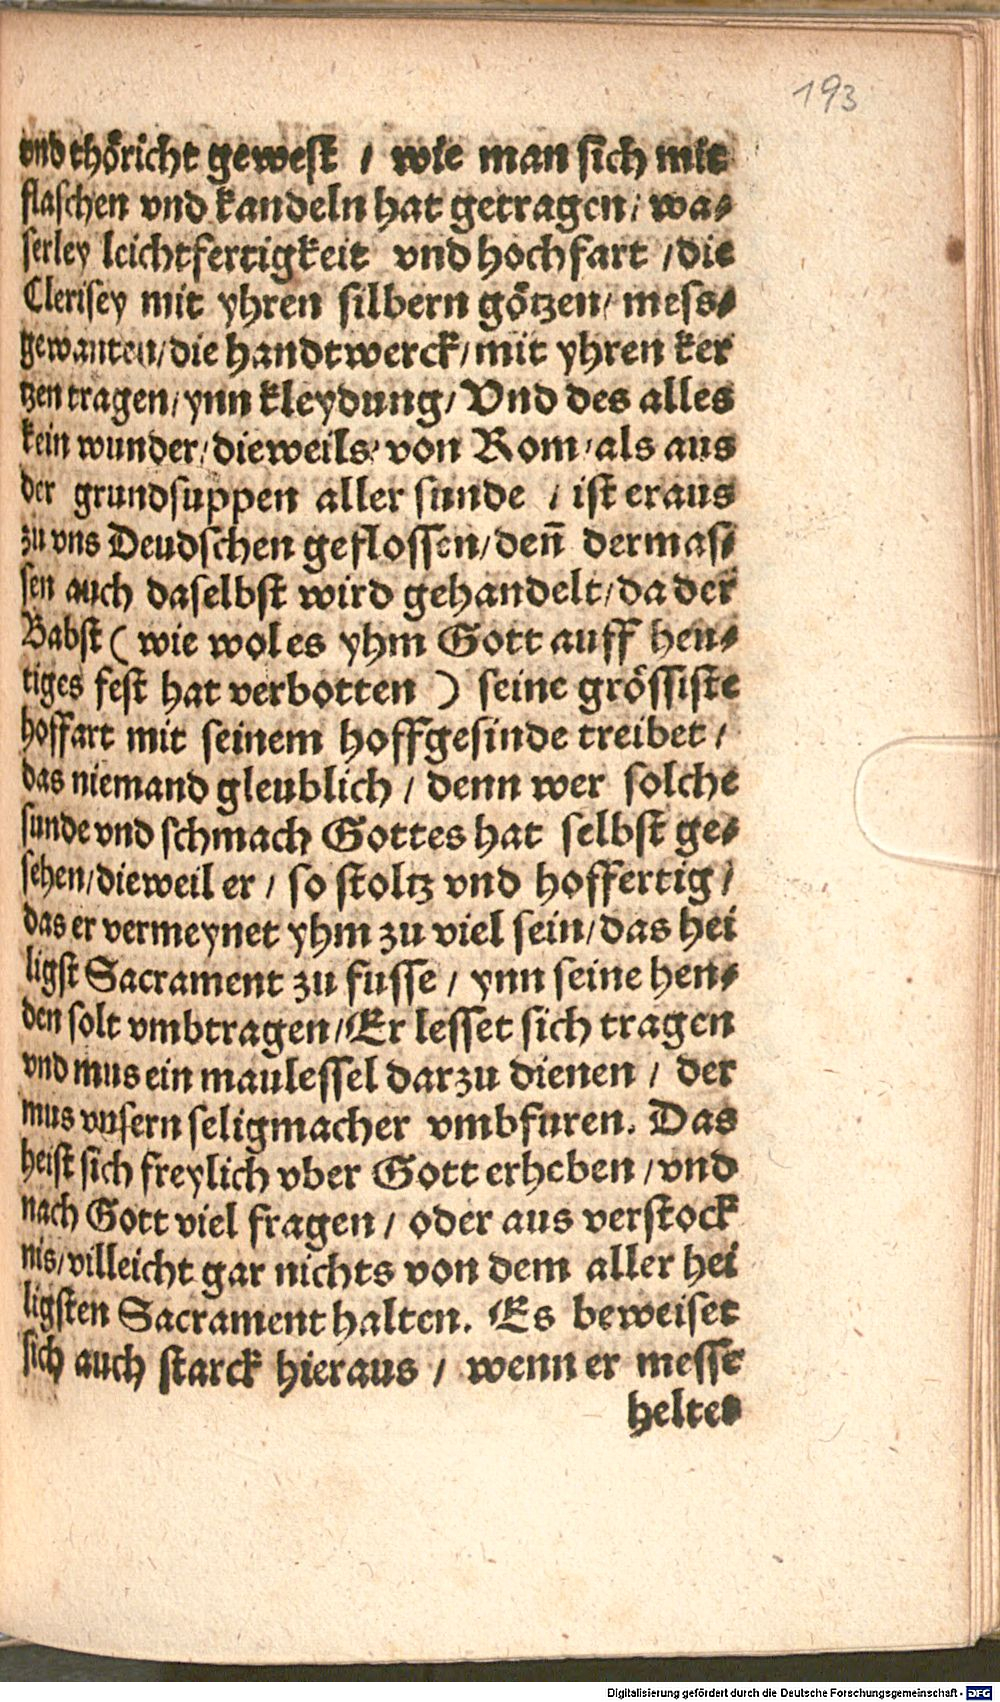 193
vnd thöricht gewest / wie man sich mit
flaschen vnd kandeln hat getragen / wa⸗
serley leichtfertigkeit vnd hochfart / die
Clerisey mit yhren silbern götzen / mess⸗
gewanten / die handtwerck / mit yhren ker
tzen tragen / ynn kleydung / Vnd des alles
kein wunder / dieweils / von Rom / als aus
der grundsuppen aller sunde / ist eraus
zu vns Deudschen geflossen / deñ dermas⸗
sen auch daselbst wird gehandelt / da der
Babst ( wie wol es yhm Gott auff heu⸗
tiges fest hat verbotten ) seine grössiste
hoffart mit seinem hoffgesinde treibet /
das niemand gleublich / denn wer solche
sunde vnd schmach Gottes hat selbst ge⸗
sehen / dieweil er / so stoltz vnd hoffertig /
das er vermeynet yhm zu viel sein / das hei
ligst Sacrament zu fusse / ynn seine hen⸗
den solt vmbtragen / Er lesset sich tragen
vnd mus ein maulessel darzu dienen / der
mus vnsern seligmacher vmbfuren. Das
heist sich freylich vber Gott erheben / vnd
nach Gott viel fragen / oder aus verstock
nis / villeicht gar nichts von dem aller hei
ligsten Sacrament halten. Es beweiset
sich auch starck hieraus / wenn er messe
heltes
Digitalisierung gefördert durch die Deutsche Forschungsgemeinschaft - DFG